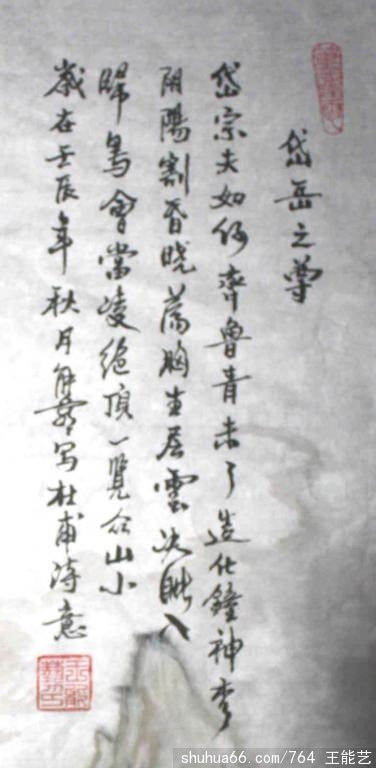 岱岳之尊
岱宗夫如何齊魯青未了造化鐘神秀
阴陽割昏晓荡胸生层雲决眦入
歸鳥會當凌絶頂一覽众山小
歲在壬辰年秋月能藝写杜甫诗意
shuhua66.com/764 王能艺